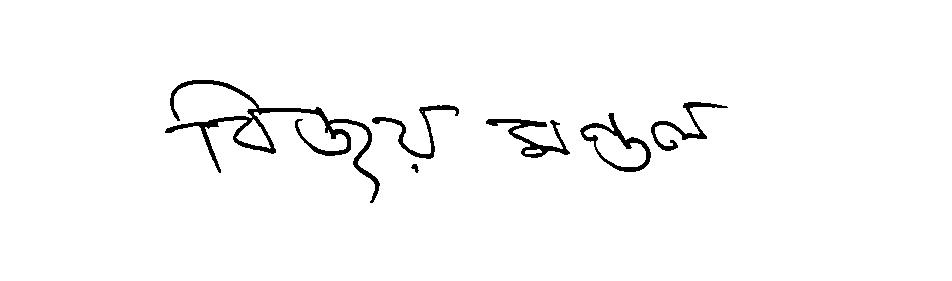 বিজয় মণ্ডল